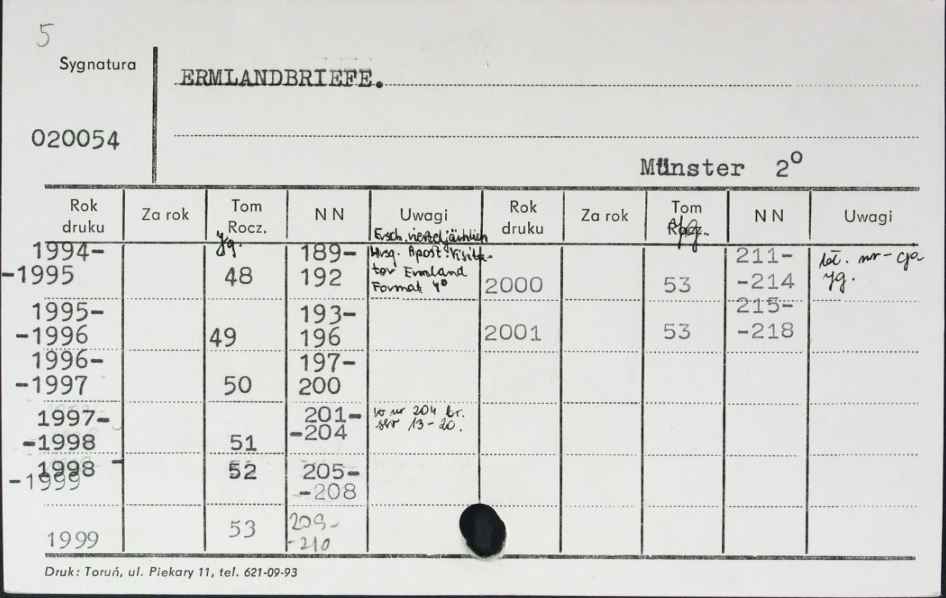 5
Sygnatura
ERMLANDBRIEFE.
020054
Münster 2º
Rok druku Za rok Tom Rocz. NN Uwagi Rok druku Za rok Tom Rocz. NN Uwagi
Jg. Jg.
1994--1995 48 189-192 Ersch. vierteljährlich
Hrsg. Apost. Visita-
tor Ermland
Format 4º
2000 53 211--214 bł. nr-cja
Jg.
1995--1996 49 193-196 2001 53 215--218
1996--1997 50 197-200
1997--1998 51 201--204 w nr 204 br.
str 13-20.
1998--1999 52 205--208
1999 53 209--210
Druk: Toruń, ul. Piekary 11, tel. 621-09-93